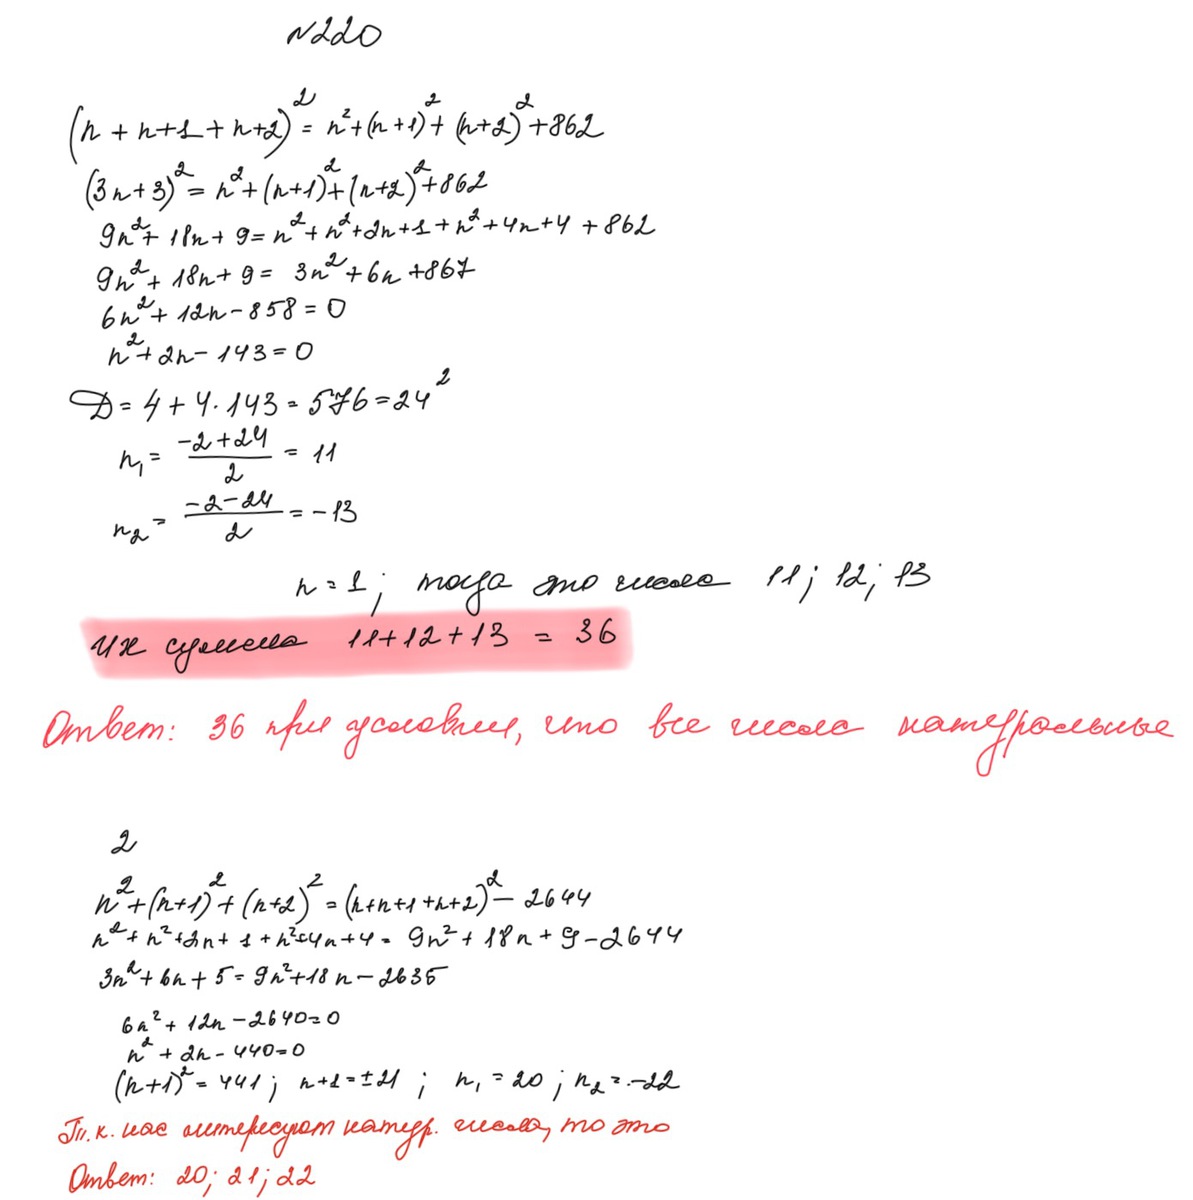 N220
(n + n+1 + n+2)² = n²+(n+1)²+ (n+2)²+862
(3n+3)² = n²+(n+1)²+(n+2)²+862
9n²+ 18n+ 9= n²+ n²+2n+1+n²+4n+4 +862
9n²+ 18n+ 9 = 3n²+6n +867
6n²+ 12n-858=0
n²+ 2n- 143=0
D= 4+ 4·143 = 576=24²
n₁= (-2+24)/2 = 11
n₂= (-2-24)/2 = -13
n = 1; тогда это числа 11; 12; 13
Их сумма 11+12+13 = 36
Ответ: 36 при условии, что все числа натуральные
2
n²+(n+1)²+ (n+2)² = (n+n+1 +n+2)²- 2644
n²+ n²+2n+ 1 + n²+4n+4= 9n²+ 18n+ 9-2644
3n²+ 6n + 5= 9n²+18n-2635
6n²+ 12n -2640=0
n² + 2n- 440=0
(n+1)²= 441; n+1=±21 ; n₁ = 20; n₂ = -22
Т.к. нас интересуют натур. числа, то это
Ответ: 20; 21; 22